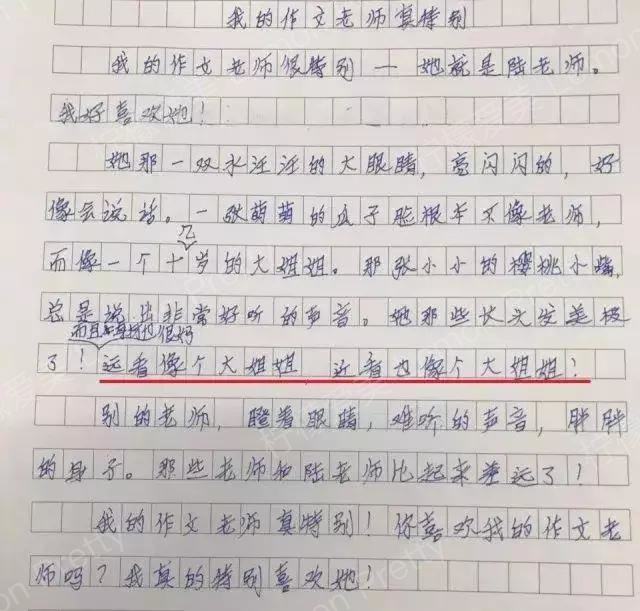 我的作文老师真特别
我的作文老师很特别—她就是陆老师。
我好喜欢她！
她那一双水汪汪的大眼睛，亮闪闪的，好
像会说话。一张萌萌的瓜子脸根本不像老师，
而像一个十几岁的大姐姐。那张小小的樱桃小嘴，
总是说出非常好听的声音。她那些长头发美极
而且身材也很好
了！远看像个大姐姐，近看也像个大姐姐！
别的老师，瞪着眼睛，难听的声音，胖胖
的身子。那些老师和陆老师比起来差远了！
我的作文老师真特别！你喜欢我的作文老
师吗？我真的特别喜欢她！